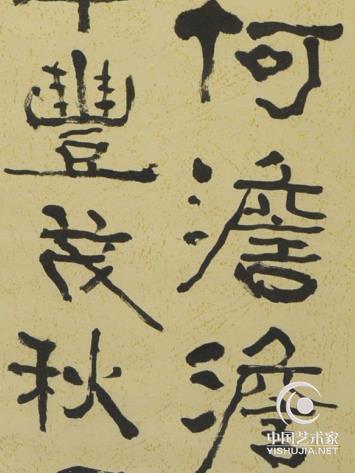 何澹澹
豐茂秋
中国艺术家
YISHUJIA.NET